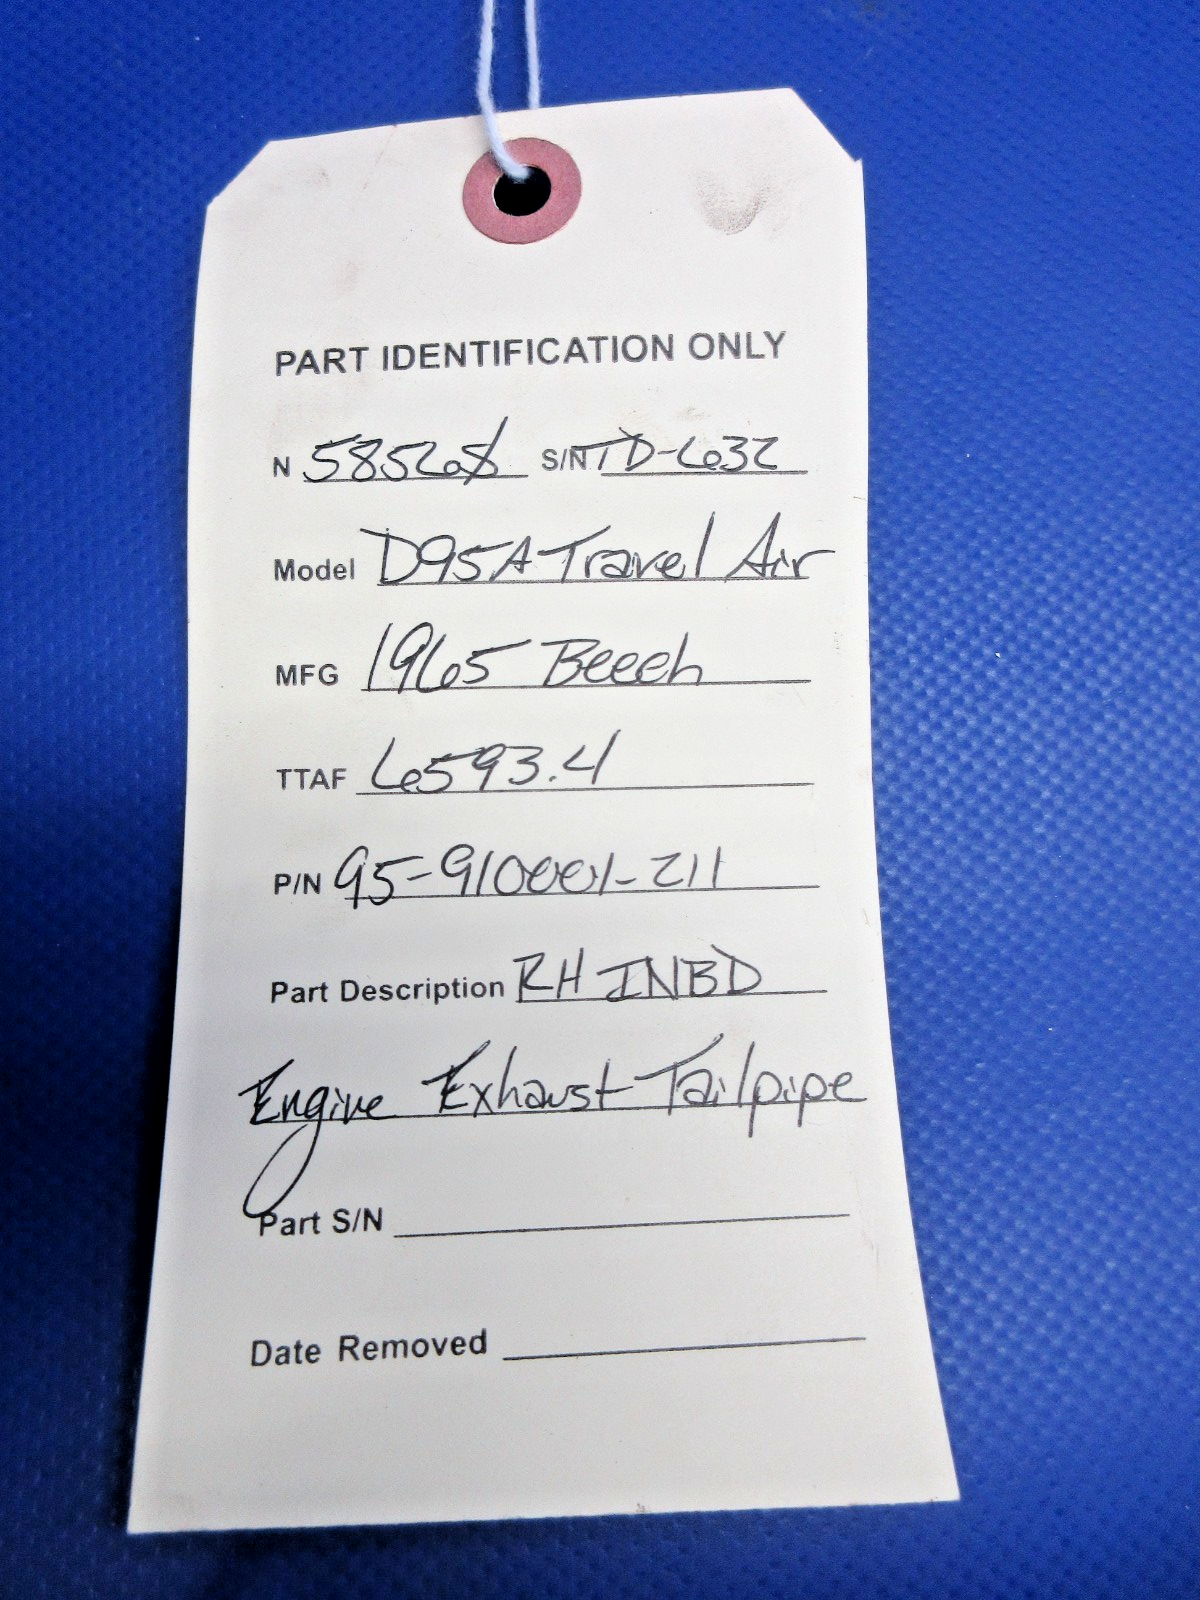 PART IDENTIFICATION ONLY
N 5856S S/N TD-632
Model D95A Travel Air
MFG 1965 Beech
TTAF 6593.4
P/N 95-910001-211
Part Description RH INBD
Engine Exhaust Tailpipe
Part S/N
Date Removed